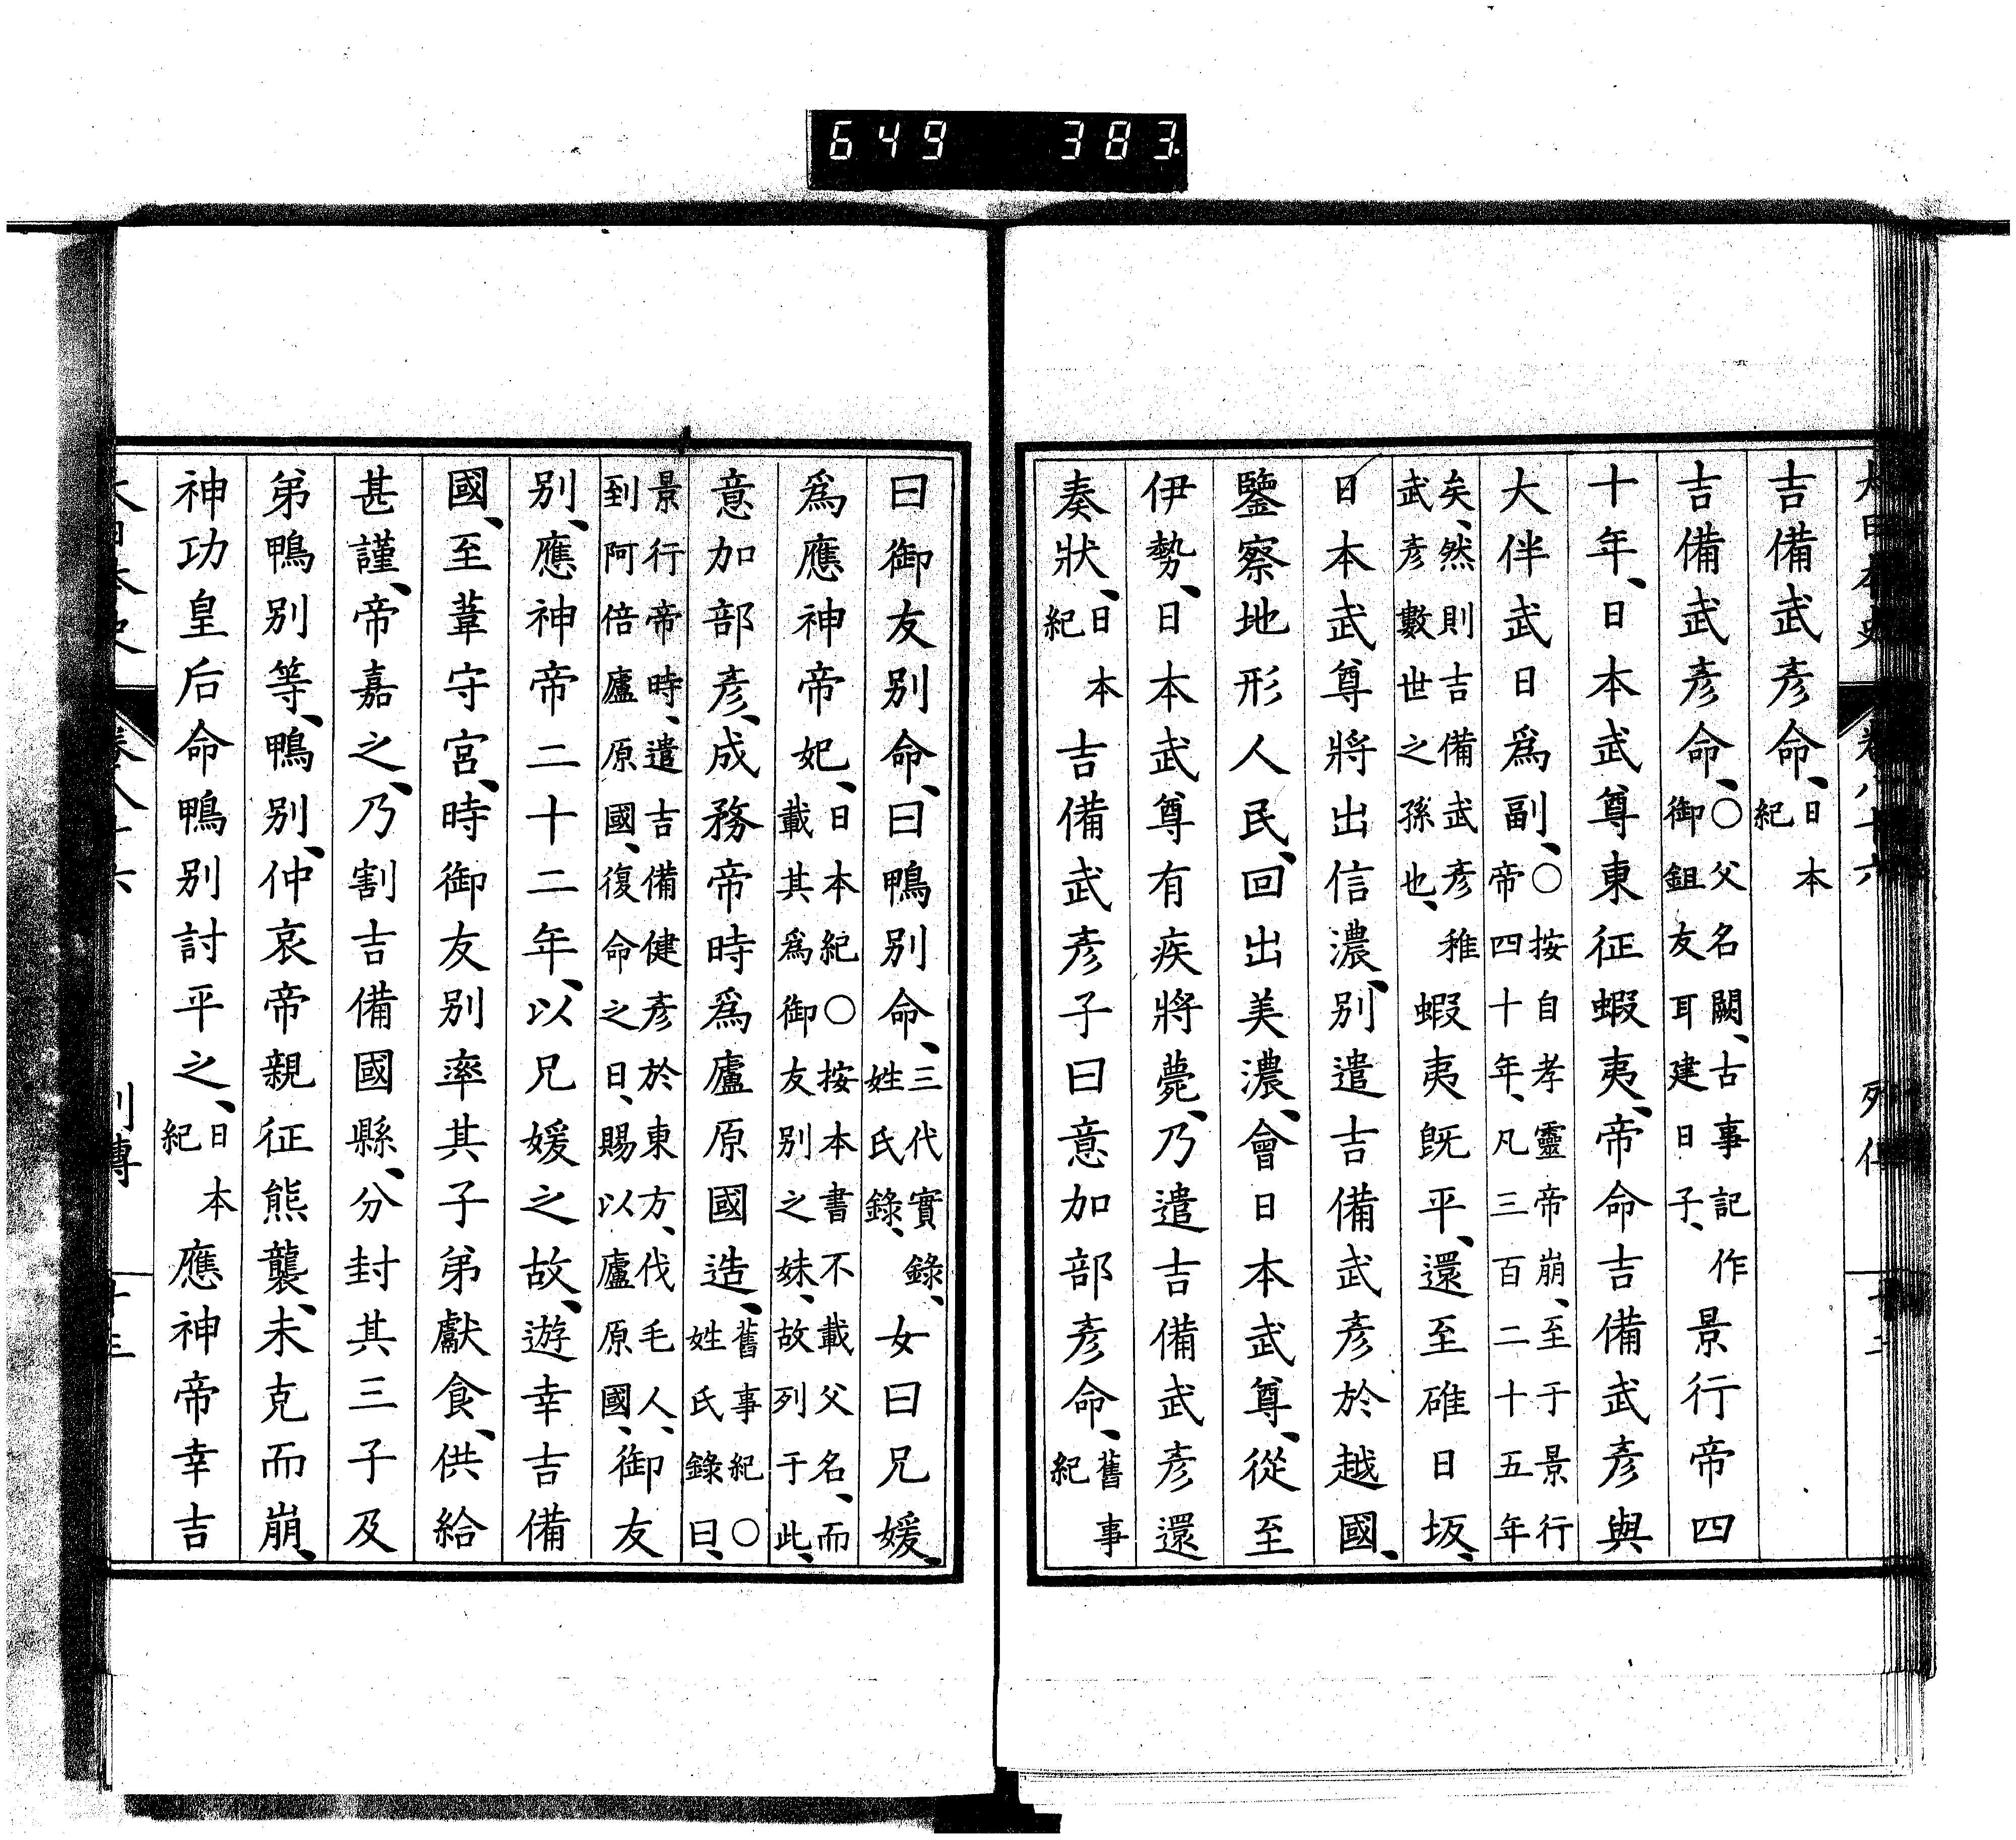 大日本史 卷八十六 列傳
吉備武彥命、日本紀
吉備武彥命、〇父名闕、古事記作御鉏友耳建日子、景行帝四
十年、日本武尊東征蝦夷、帝命吉備武彥與
大伴武日爲副、〇按自孝靈帝崩、至于景行帝四十年、凡三百二十五年
矣、然則吉備武彥稚武彥數世之孫也、蝦夷旣平、還至碓日坂、
日本武尊將出信濃、別遣吉備武彥於越國、
鑒察地形人民、回出美濃、會日本武尊、從至
伊勢、日本武尊有疾將薨、乃遣吉備武彥還
奏狀、日本紀吉備武彥子曰意加部彥命、舊事紀
曰御友別命、曰鴨別命、三代實錄、姓氏錄、女曰兄媛、
爲應神帝妃、日本紀〇按本書不載父名、而載其爲御友別之妹、故列于此、
意加部彥、成務帝時爲廬原國造、舊事紀〇姓氏錄曰、
景行帝時、遣吉備健彥於東方、伐毛人、到阿倍廬原國、復命之日、賜以廬原國、御友
別、應神帝二十二年、以兄媛之故、遊幸吉備
國、至葦守宮、時御友別率其子弟獻食、供給
甚謹、帝嘉之、乃割吉備國縣、分封其三子及
弟鴨別等、鴨別、仲哀帝親征熊襲、未克而崩、
神功皇后命鴨別討平之、日本紀應神帝幸吉
大日本史 卷八十六 列傳
649 383.